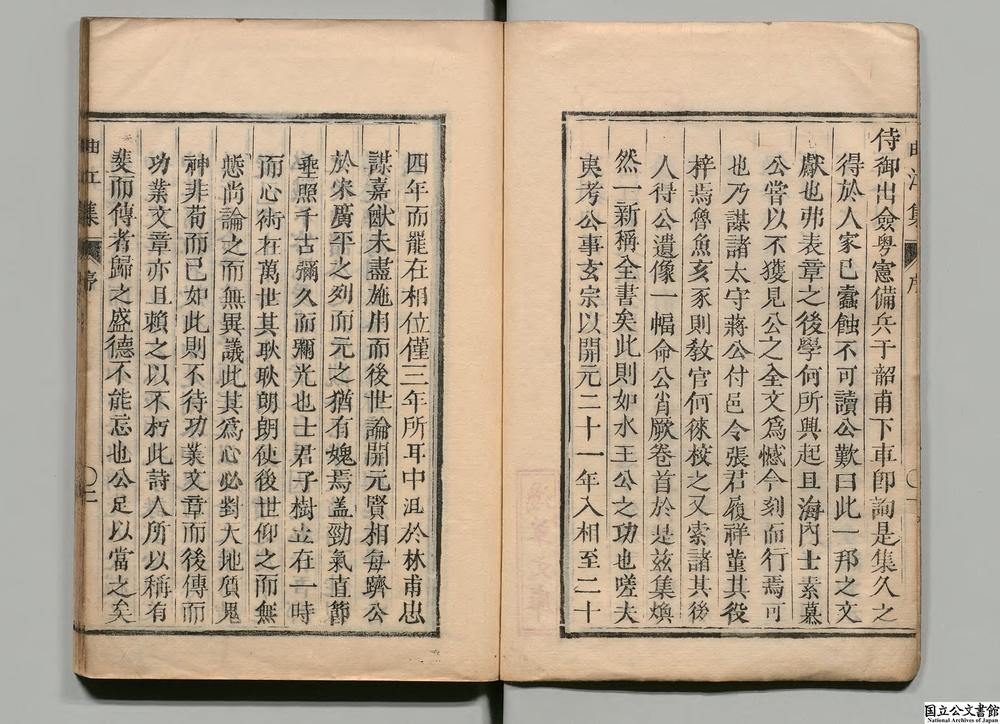 侍御出僉粤憲備兵于韶甫下車即詢是集久之
得於人家已蠹蝕不可讀公歎曰此一邦之文
獻也弗表章之後學何所興起且海內士素慕
公嘗以不獲見公之全文爲憾今刻而行焉可
也乃謀諸太守蔣公付邑令張君履祥董其役
梓焉魯魚亥豕則教官何徠校之又索諸其後
人得公遺像一幅命公肖厥卷首於是茲集煥
然一新稱全書矣此則如水王公之功也嗟夫
夷考公事玄宗以開元二十一年入相至二十
四年而罷在相位僅三年所耳中沮於林甫忠
謀嘉猷未盡施用而後世論開元賢相每躋公
於宋廣平之列而元之猶有媿焉盖勁氣直節
垂照千古彌久而彌光也士君子樹立在一時
而心術在萬世其耿耿朗朗使後世仰之而無
怠尚論之而無異議此其爲心必對天地質鬼
神非苟而已如此則不待功業文章而後傳而
功業文章亦且賴之以不朽此詩人所以稱有
斐而傳者歸之盛德不能忘也公足以當之矣
曲江集 序 二
国立公文書館
National Archives of Japan